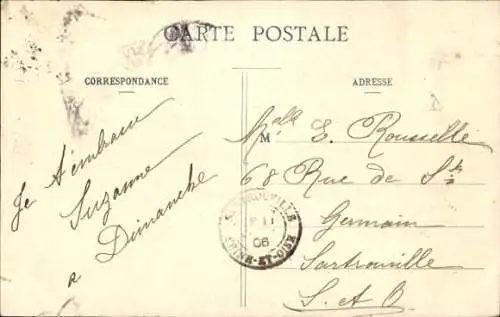 CARTE POSTALE
CORRESPONDANCE
Je t'embrasse
Suzanne
a Dimanche
ADRESSE
Mlle E. Rousselle
68 Rue de St
Germain
Sartrouville
S. et O
SARTROUVILLE
06
SEINE-ET-OISE